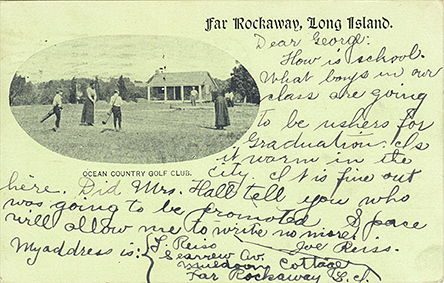 Far Rockaway, Long Island.
Dear George:
How is school.
What boys in our
class are going
to be ushers for
Graduation. Is
it warm in the
city. It is fine out
OCEAN COUNTRY GOLF CLUB.
here. Did Mrs. Hall tell you who
was going to be promoted. Space
will allow me to write no more.
Joe Reiss.
My address is: J. Reiss
Av.
Cottage
Far Rockaway L.I.